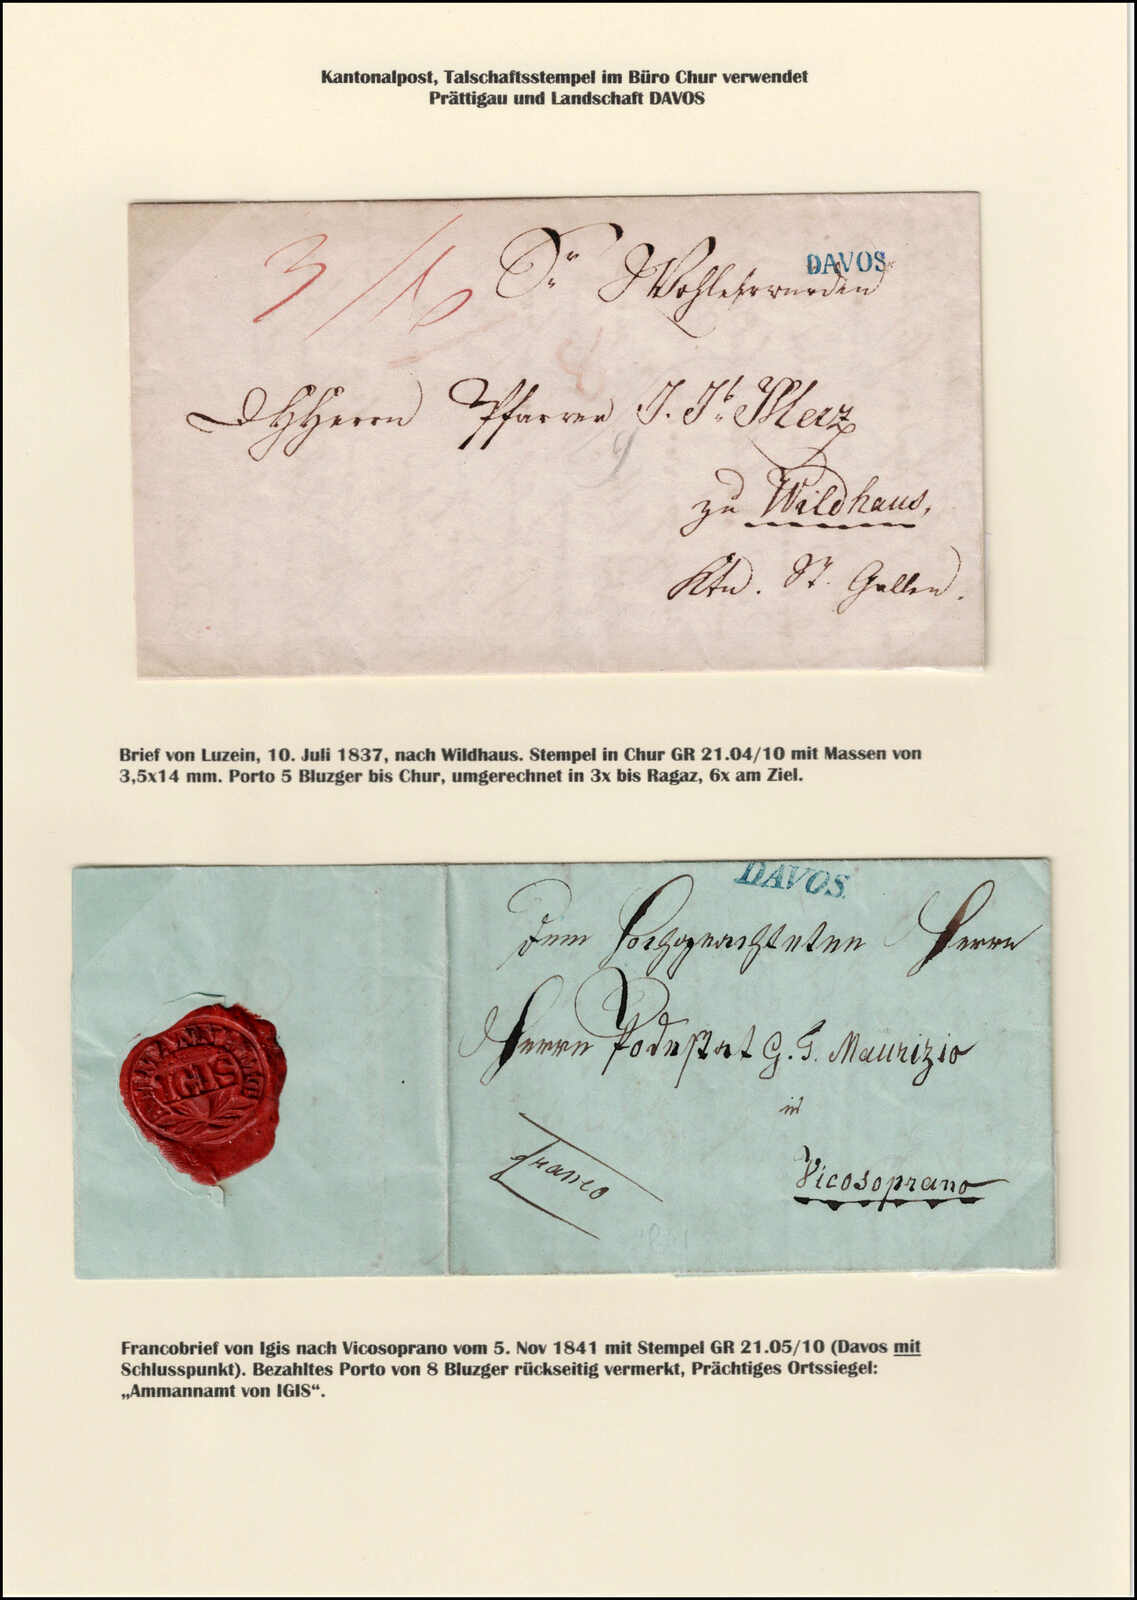 Kantonalpost, Talschaftsstempel im Büro Chur verwendet
Prättigau und Landschaft DAVOS
3/6
DAVOS
Sr Wohlehrwürden
HHHerrn Pfarrer J. Jb Merz
zu Wildhaus,
Ktn. St. Gallen.
Brief von Luzein, 10. Juli 1837, nach Wildhaus. Stempel in Chur GR 21.04/10 mit Massen von
3,5x14 mm. Porto 5 Bluzger bis Chur, umgerechnet in 3x bis Ragaz, 6x am Ziel.
DAVOS.
Dem Hochgeachteten Herrn
Herrn Podestat G. G. Maurizio
in
Vicosoprano
franco
IGIS
Francobrief von Igis nach Vicosoprano vom 5. Nov 1841 mit Stempel GR 21.05/10 (Davos mit
Schlusspunkt). Bezahltes Porto von 8 Bluzger rückseitig vermerkt, Prächtiges Ortssiegel:
„Ammannamt von IGIS“.